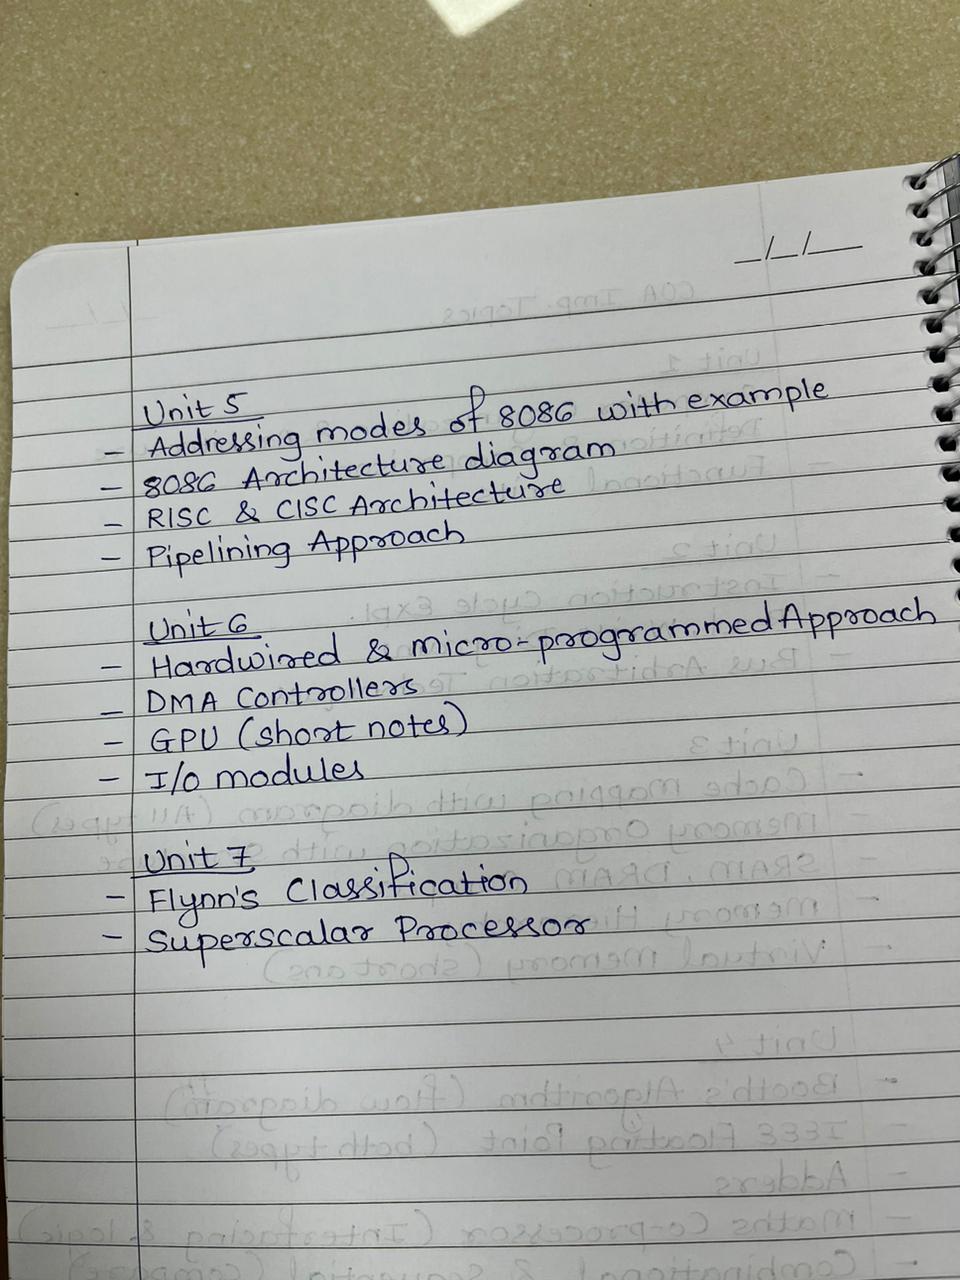 _/_/__
Unit 5
- Addressing modes of 8086 with example
- 8086 Architecture diagram
- RISC & CISC Architecture
- Pipelining Approach
Unit 6
- Hardwired & micro-programmed Approach
- DMA Controllers
- GPU (short notes)
- I/O modules
Unit 7
- Flynn's Classification
- Superscalar Processor